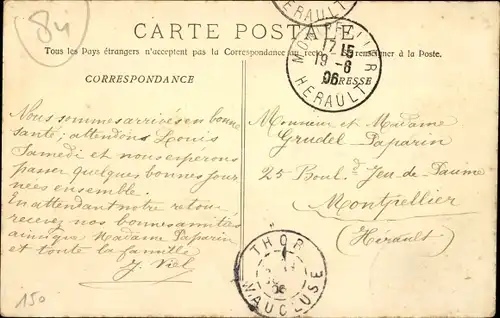 84
CARTE POSTALE
Tous les Pays étrangers n'acceptent pas la Correspondance au recto se renseigner à la Poste.
CORRESPONDANCE
ADRESSE
HERAULT
MONTPELLIER
17 15
19 -6
06
HERAULT
Nous sommes arrivés en bonne
santé; attendons Louis
Samedi et nous esperons
passer quelques bonnes jour
nées ensemble.
En attendant notre retour
recevez nos bonnes amitiés
ainsi que Madame Paparin
et toute la famille
J. Viel
Monsieur et Madame
Grudel Paparin
25 Boul. d Jeu de Paume
Montpellier
(Hérault)
THOR
06
VAUCLUSE
150